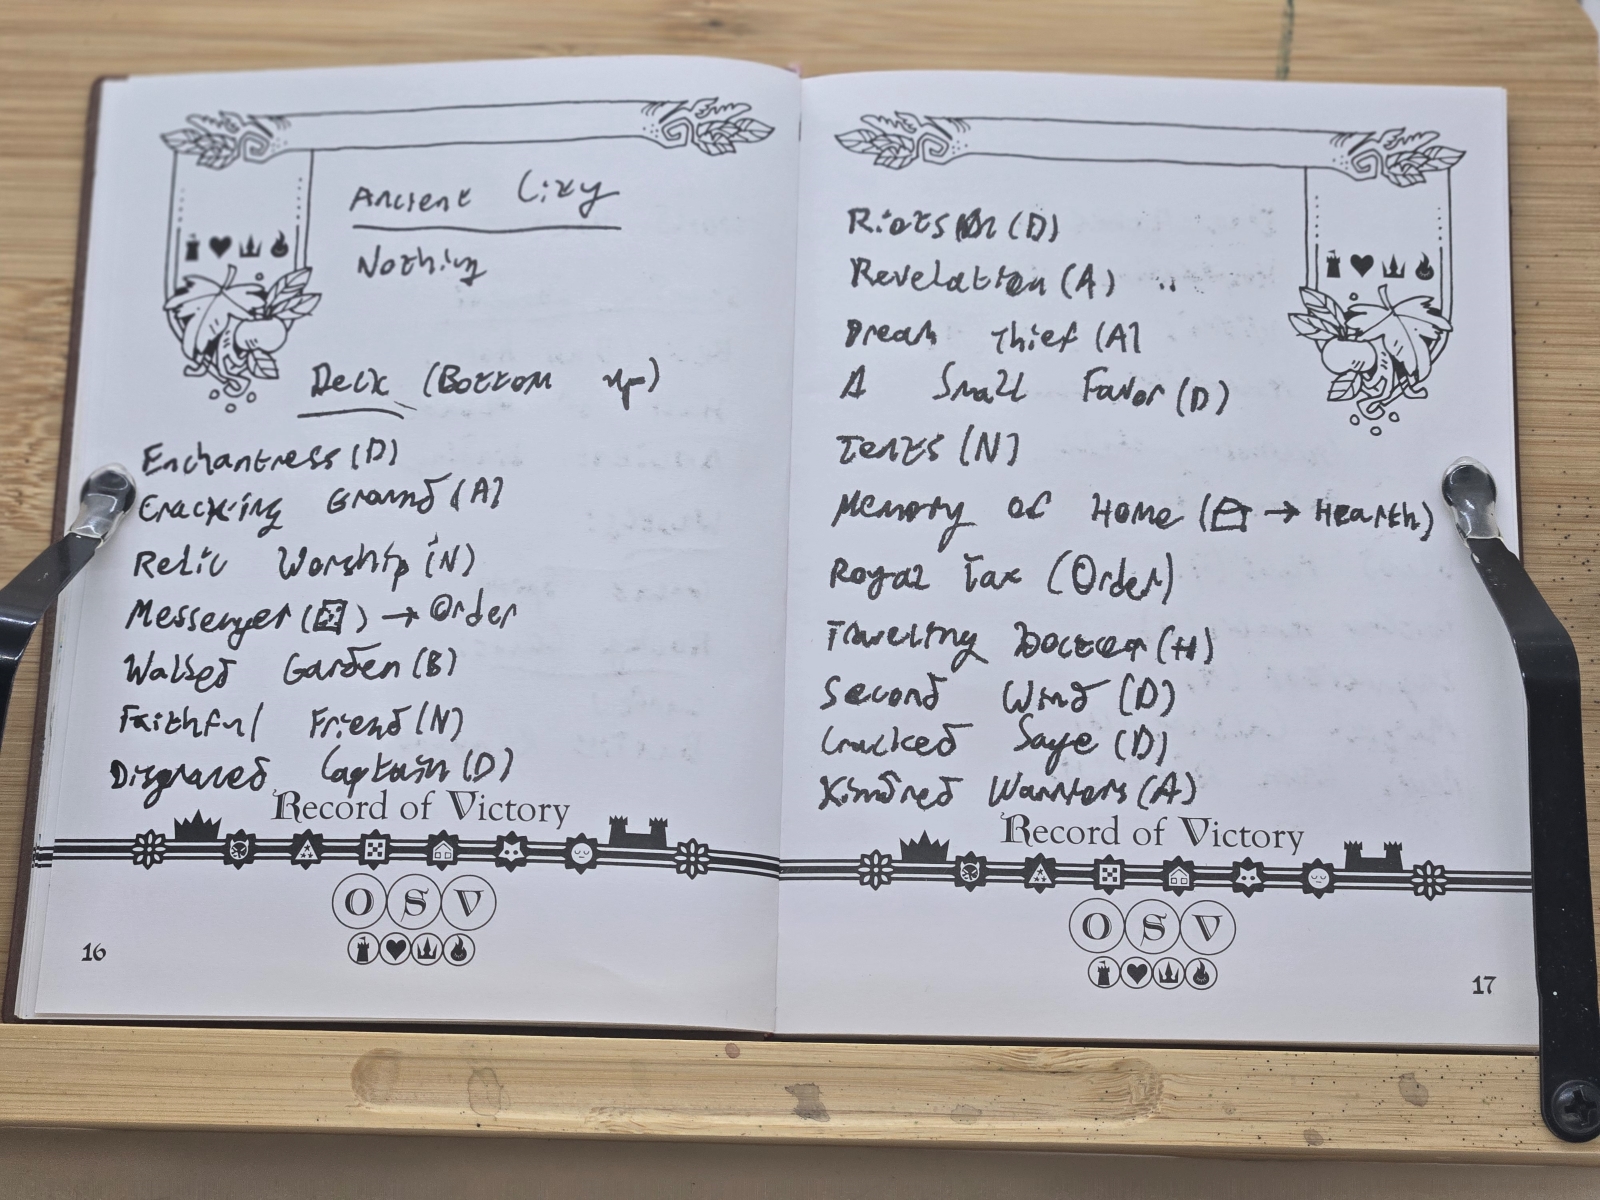 Ancient City
Nothing
Deck (Bottom up)
Enchantress (D)
Cracking Ground (A)
Relic Worship (N)
Messenger (⚄) → Order
Walled Garden (B)
Faithful Friend (N)
Disgraced Captain (D)
Record of Victory
O S V
16
Riots (D)
Revelation (A)
Dream Thief (A)
A Small Favor (D)
Tents (N)
Memory of Home ( → Hearth)
Royal Tax (Order)
Traveling Doctor (H)
Second Wind (D)
Cracked Sage (D)
Kindred Warriors (A)
Record of Victory
O S V
17